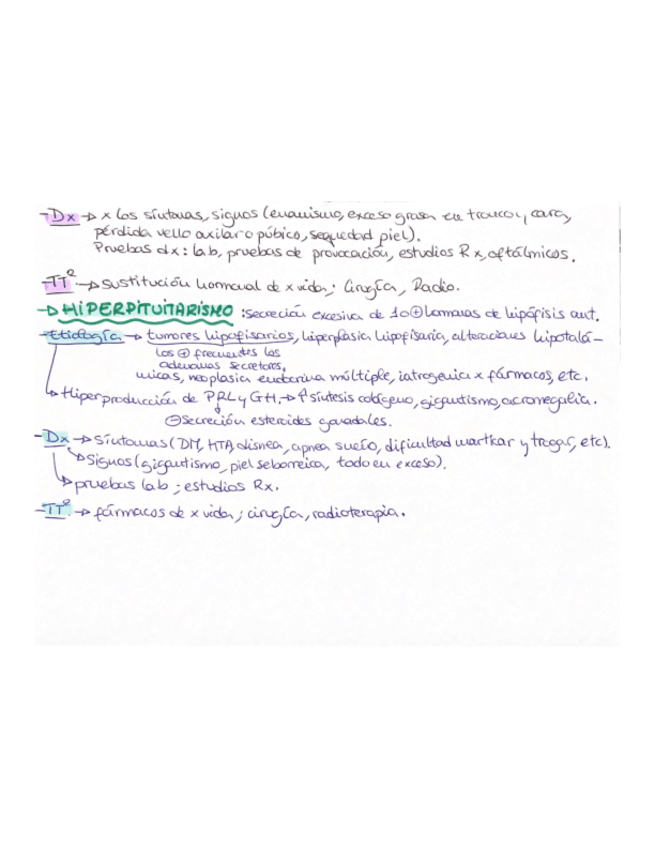 -Dx → x los síntomas, signos (enanismo, exceso grasa en tronco y cara,
pérdida vello axilar o púbico, sequedad piel).
Pruebas dx: lab, pruebas de provocación, estudios Rx, oftálmicos.
-TTº → sustitución hormonal de x vida; cirugía, Radio.
→ HIPERPITUITARISMO: secreción excesiva de 1 o ⊕ hormonas de hipófisis ant.
-Etiología → tumores hipofisarios, hiperplasia hipofisaria, alteraciones hipotalá-
los ⊕ frecuentes los
adenomas secretores.
micas, neoplasia endocrina múltiple, iatrogenica x fármacos, etc.
→ Hiperproducción de PRL y GH. → ↑ síntesis colágeno, gigantismo, acromegalia.
⊖ secreción esteroides gonadales.
-Dx → Síntomas (DM, HTA, disnea, apnea sueño, dificultad masticar y tragar, etc).
→ Signos (gigantismo, piel seborreica, todo en exceso).
→ pruebas lab; estudios Rx.
-TTº → fármacos de x vida; cirugía, radioterapia.